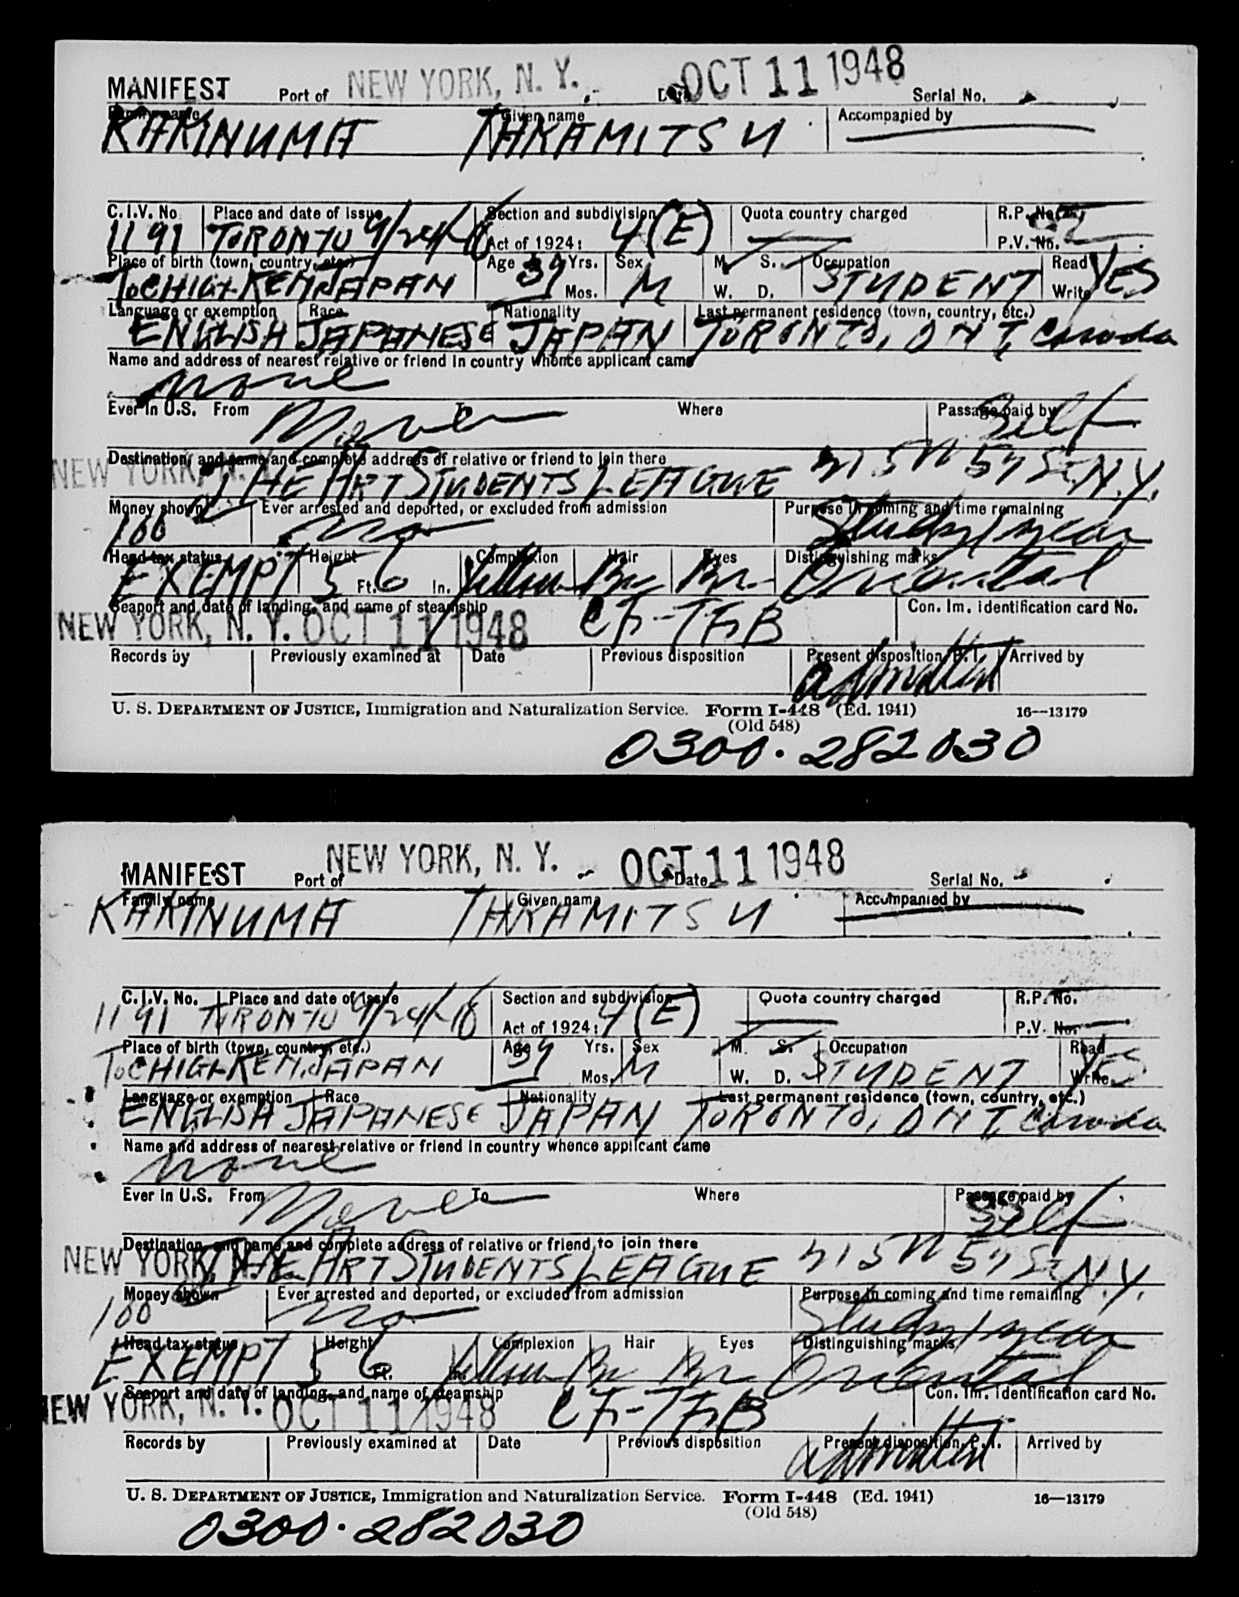 MANIFEST Port of NEW YORK, N. Y. Date OCT 11 1948 Serial No.
Family name KAKINUMA Given name TAKAMITSU Accompanied by
C.I.V. No. Place and date of issue Section and subdivision Quota country charged R.P. No.
1191 TORONTO 9/24/48 Act of 1924: 4(E) P.V. No.
Place of birth (town, country, etc.) Age Yrs. Sex M. S. Occupation Read
TOCHIGI-KEN, JAPAN 39 Mos. M W. D. STUDENT Write YES
Language or exemption Race Nationality Last permanent residence (town, country, etc.)
ENGLISH JAPANESE JAPAN TORONTO, ONT, Canada
Name and address of nearest relative or friend in country whence applicant came
none
Ever in U.S. From To Where Passage paid by
Never Self
Destination, and name and complete address of relative or friend to join there
NEW YORK, N. Y. THE ART STUDENTS LEAGUE 215 W 57 St. N.Y.
Money shown Ever arrested and deported, or excluded from admission Purpose in coming and time remaining
100 No Study 1 year
Head tax status Height Complexion Hair Eyes Distinguishing marks
EXEMPT 5 Ft. 6 In. Yellow Br Br Oriental
Seaport and date of landing, and name of steamship Con. Im. identification card No.
NEW YORK, N. Y. OCT 11 1948 CF-TFB
Records by Previously examined at Date Previous disposition Present disposition, P.I. Arrived by
admitted
U. S. DEPARTMENT OF JUSTICE, Immigration and Naturalization Service. Form I-448 (Ed. 1941) 16—13179
(Old 548)
0300.282030
MANIFEST Port of NEW YORK, N. Y. Date OCT 11 1948 Serial No.
Family name KAKINUMA Given name TAKAMITSU Accompanied by
C.I.V. No. Place and date of issue Section and subdivision Quota country charged R.P. No.
1191 TORONTO 9/24/48 Act of 1924: 4(E) P.V. No.
Place of birth (town, country, etc.) Age Yrs. Sex M. S. Occupation Read
TOCHIGI-KEN, JAPAN 39 Mos. M W. D. STUDENT Write YES
Language or exemption Race Nationality Last permanent residence (town, country, etc.)
ENGLISH JAPANESE JAPAN TORONTO, ONT, Canada
Name and address of nearest relative or friend in country whence applicant came
none
Ever in U.S. From To Where Passage paid by
Never Self
Destination, and name and complete address of relative or friend to join there
NEW YORK, N. Y. THE ART STUDENTS LEAGUE 215 W 57 St. N.Y.
Money shown Ever arrested and deported, or excluded from admission Purpose in coming and time remaining
100 No Study 1 year
Head tax status Height Complexion Hair Eyes Distinguishing marks
EXEMPT 5 Ft. 6 In. Yellow Br Br Oriental
Seaport and date of landing, and name of steamship Con. Im. identification card No.
NEW YORK, N. Y. OCT 11 1948 CF-TFB
Records by Previously examined at Date Previous disposition Present disposition, P.I. Arrived by
admitted
U. S. DEPARTMENT OF JUSTICE, Immigration and Naturalization Service. Form I-448 (Ed. 1941) 16—13179
(Old 548)
0300.282030